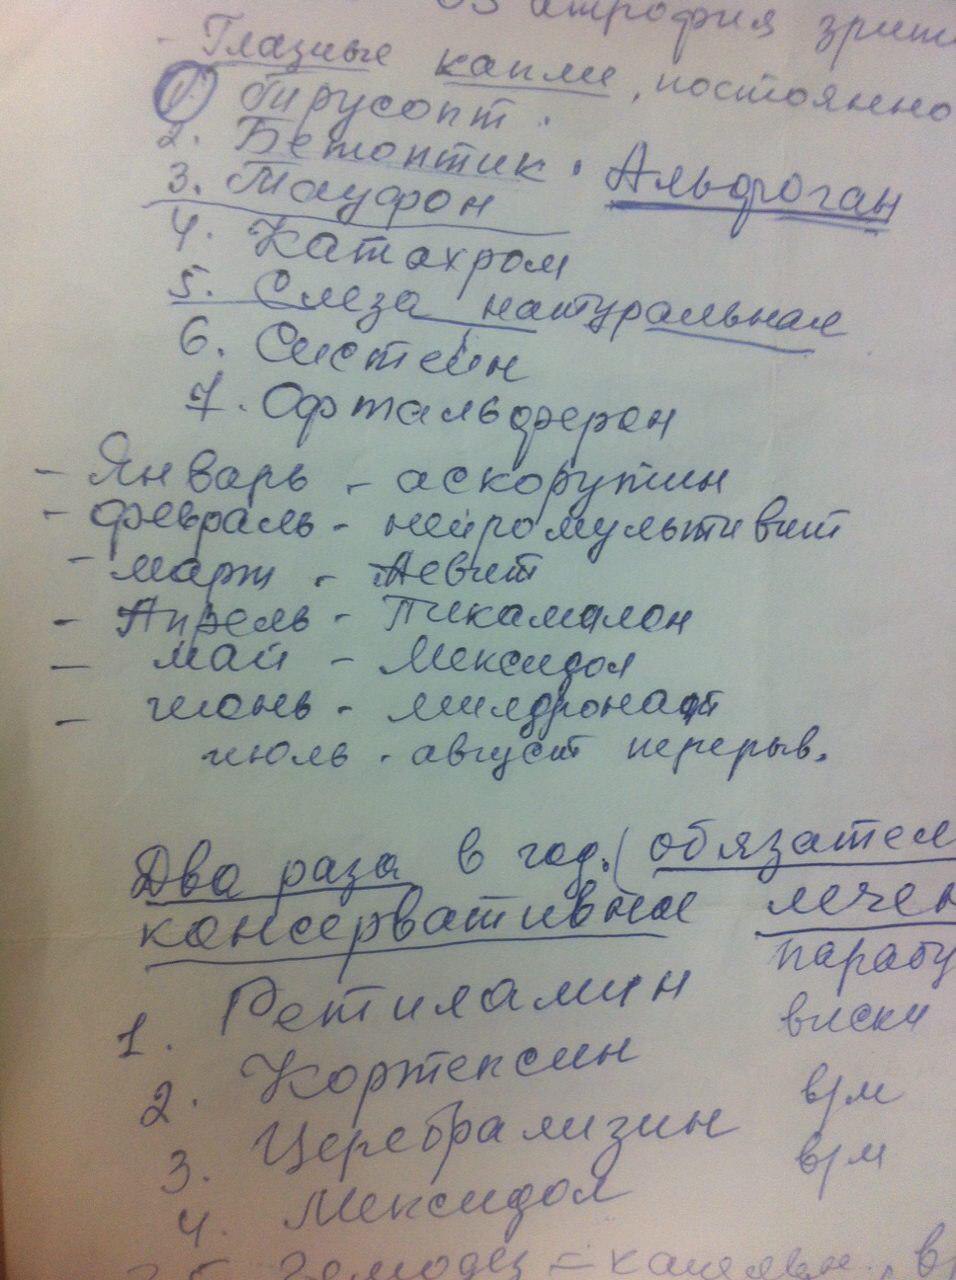 атрофия зрит
- Глазные капли, постоянно
1. бирусопт.
2. Бетоптик. Альфаган
3. Тауфон
4. Катахром
5. Слеза натуральная
6. Систейн
7. Офтальмоферон
- Январь - аскорутин
- февраль - нейромультивит
- март - Аевит
- Апрель - Пикамилон
- май - Мексидол
- июнь - милдронат
июль - август перерыв.
Два раза в год. (обязател
консервативное лечен
1. Ретиламин парабу
2. Кортексин виски
3. Церебрализин в/м
4. Мексидол в/м